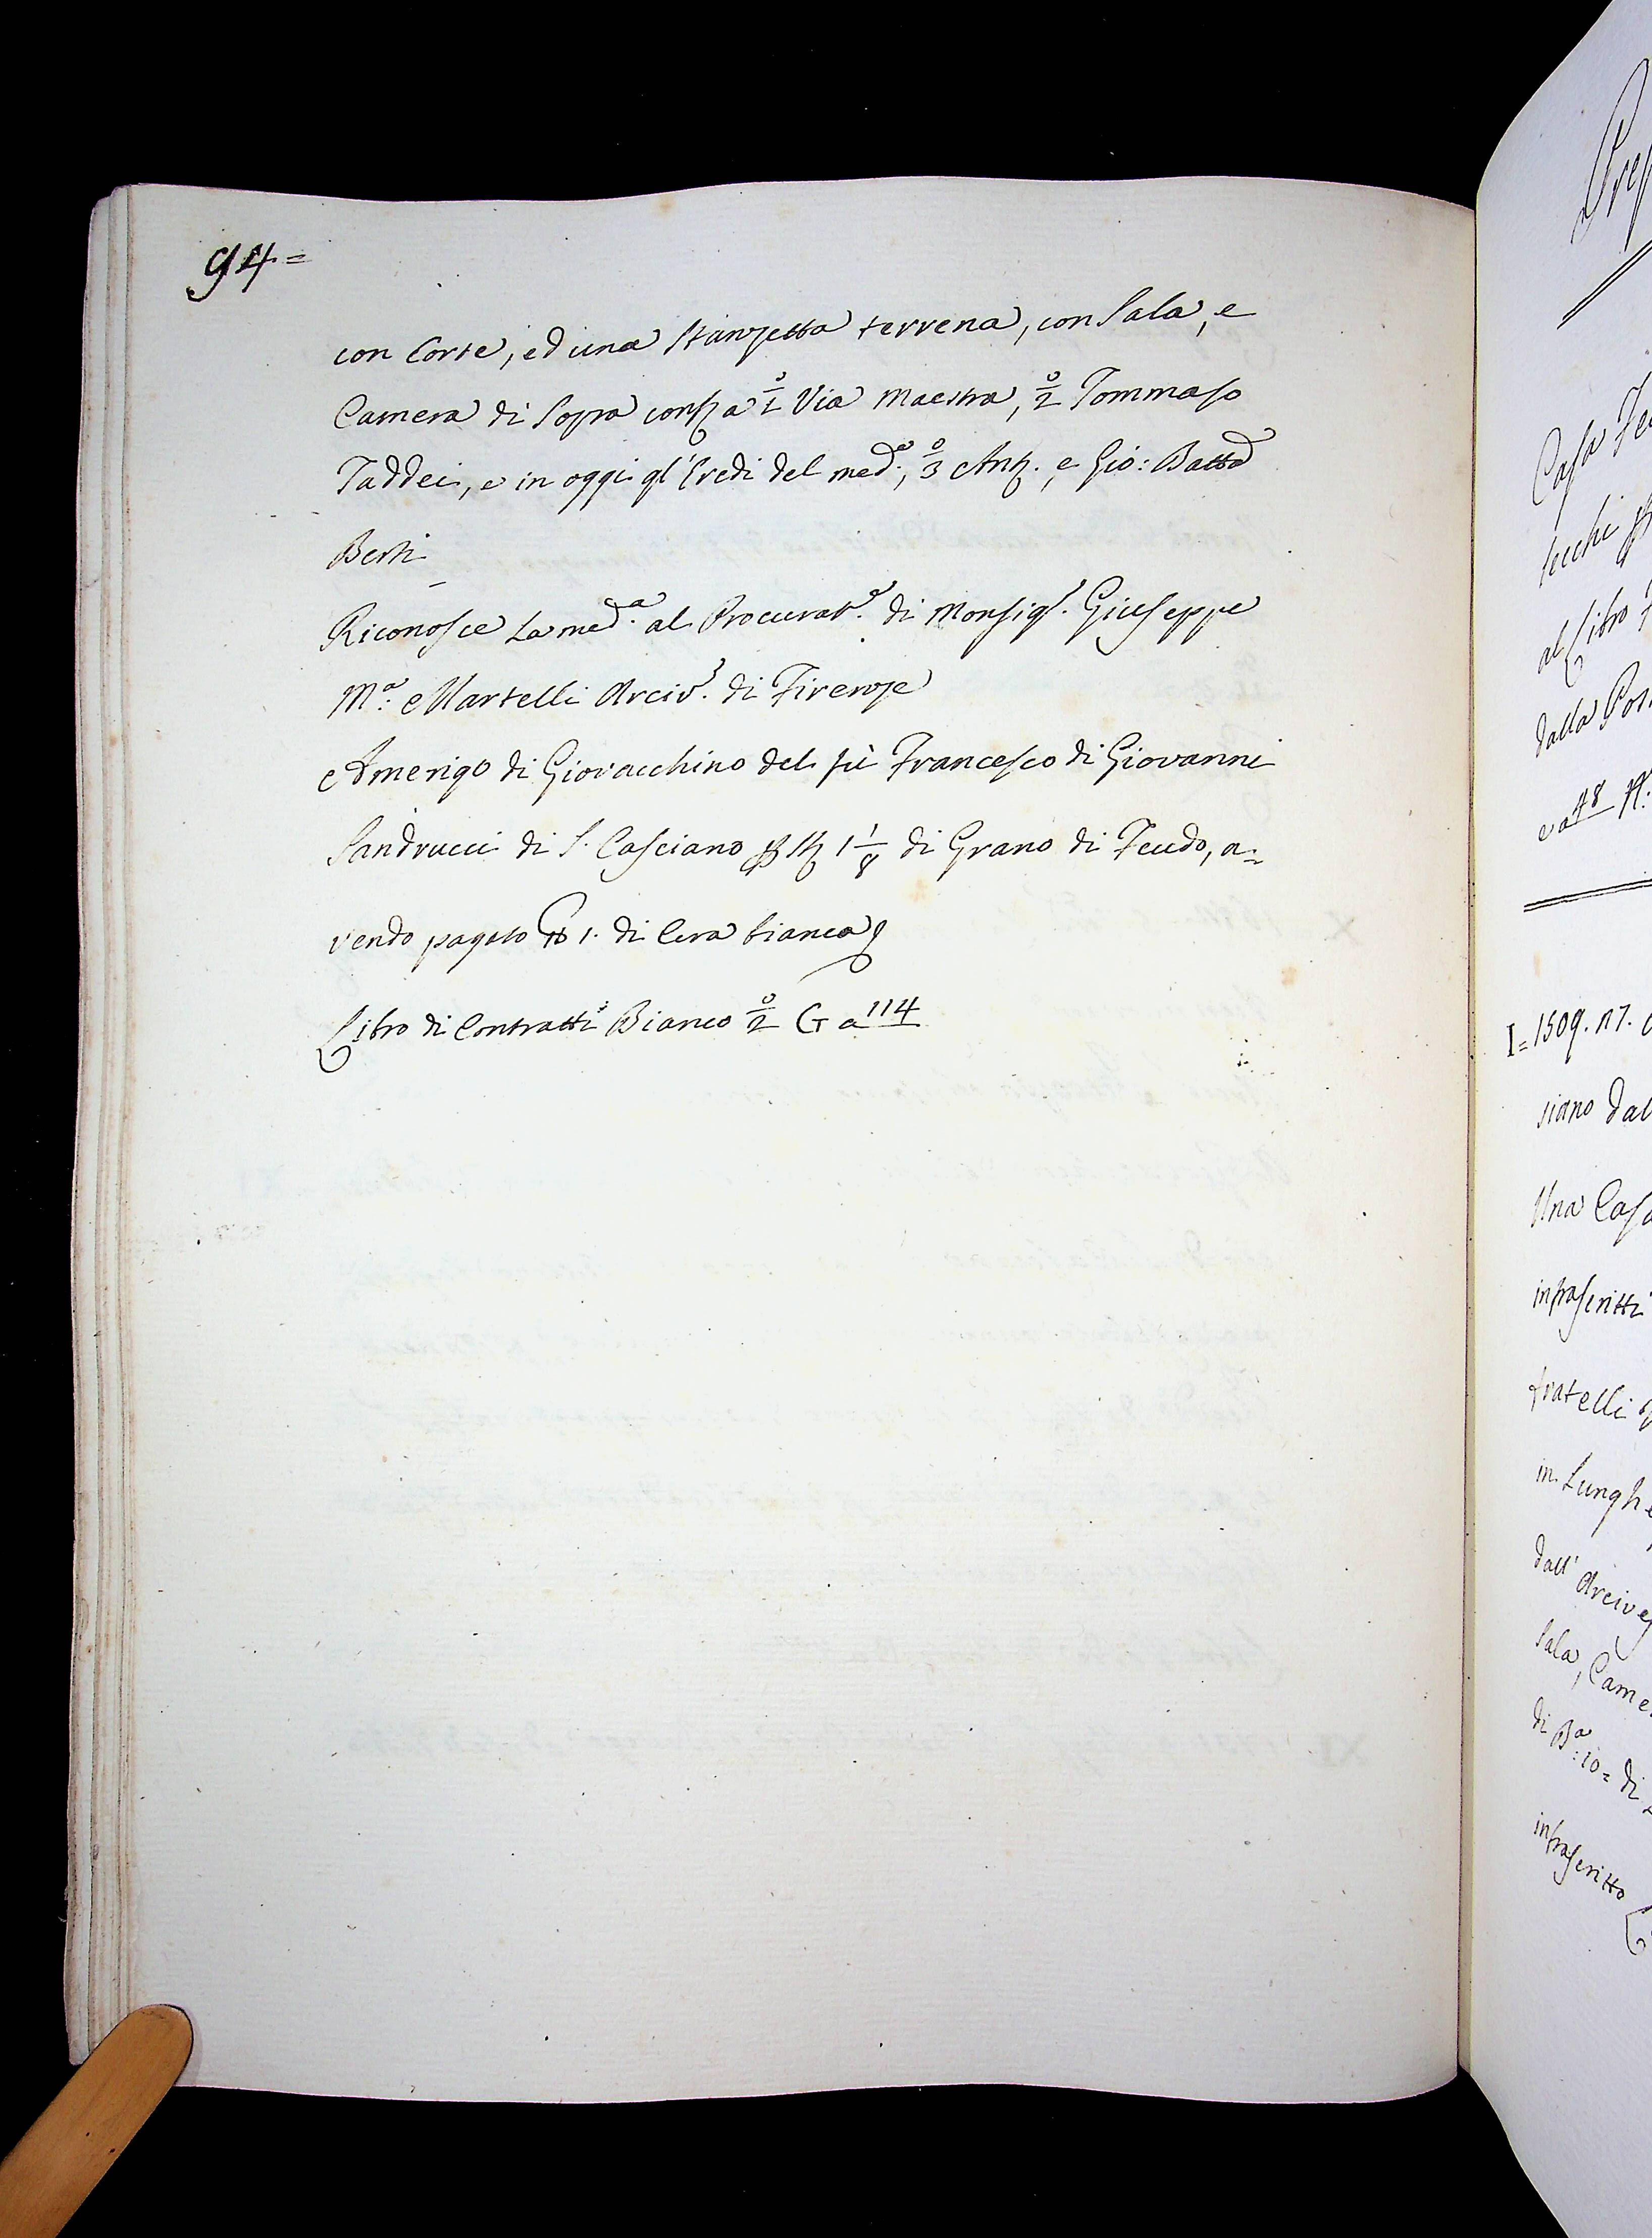 94=
con Corte, ed una Stanzetta terrena, con Sala, e
Camera di Sopra conf.a 1° Via Maestra, 2° Tommaso
Taddei, e in oggi gl'Eredi del med.°, 3° Ant.°, e Gio: Batta
Berti
Riconosce La med.a al Procurat.e di Monsig.r Giuseppe
M.a Martelli Arciv.o di Firenze
Amerigo di Giovacchino del fù Francesco di Giovanni
Sandrucci di S. Casciano p St. 1 1/8 di Grano di Feudo, a=
vendo pagato lb 1. di Cera bianca
Libro di Contratti Bianco 2° G a 114
Casa
al Libro
dalla
e a 48
I=1509.
siano dal
Una Casa
infrascritti
fratelli
in Lungh
dall' Arcives
Sala, Came
di B.a 10= di
infrascritto